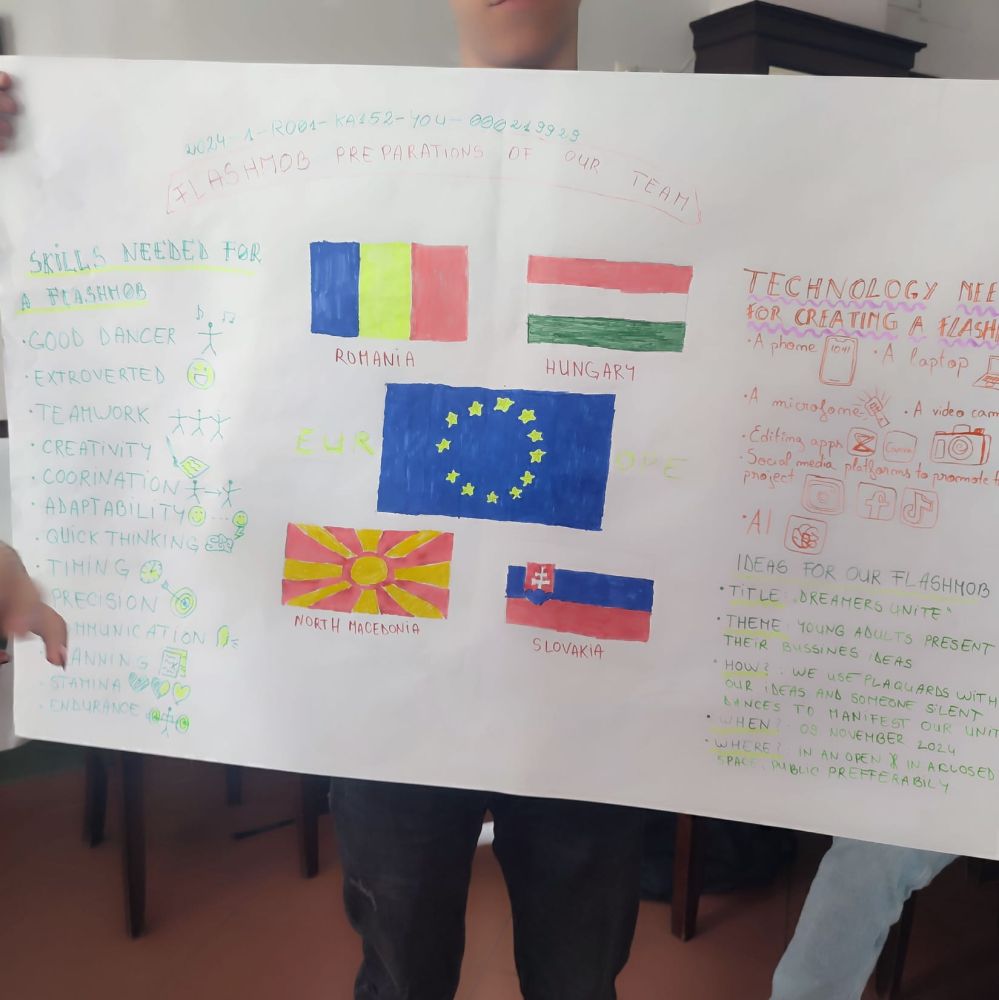 2024-1-RO01-KA152-YOU-000219929
FLASHMOB PREPARATIONS OF OUR TEAM
SKILLS NEEDED FOR
A FLASHMOB
·GOOD DANCER
·EXTROVERTED
·TEAMWORK
·CREATIVITY
·COORINATION
·ADAPTABILITY
·QUICK THINKING
·TIMING
PRECISION
MMUNICATION
ANNING
·STAMINA
·ENDURANCE
ROMANIA
HUNGARY
EUR OPE
NORTH MACEDONIA
SLOVAKIA
TECHNOLOGY NEE
FOR CREATING A FLASHM
·A phone 10:41 ·A laptop
·A microfome ·A video cam
·Editing apps Canva
·Social media platforms to promote t
project
·AI
IDEAS FOR OUR FLASHMOB
·TITLE: "DREAMERS UNITE"
·THEME: YOUNG ADULTS PRESENT
THEIR BUSSINES IDEAS
·HOW?: WE USE PLAQUARDS WITH
OUR IDEAS AND SOMEONE SILENT
DANCES TO MANIFEST OUR UNIT
·WHEN?: 09 NOVEMBER 2024
·WHERE?: IN AN OPEN & IN A CLOSED
SPACE, PUBLIC PREFFERABILY